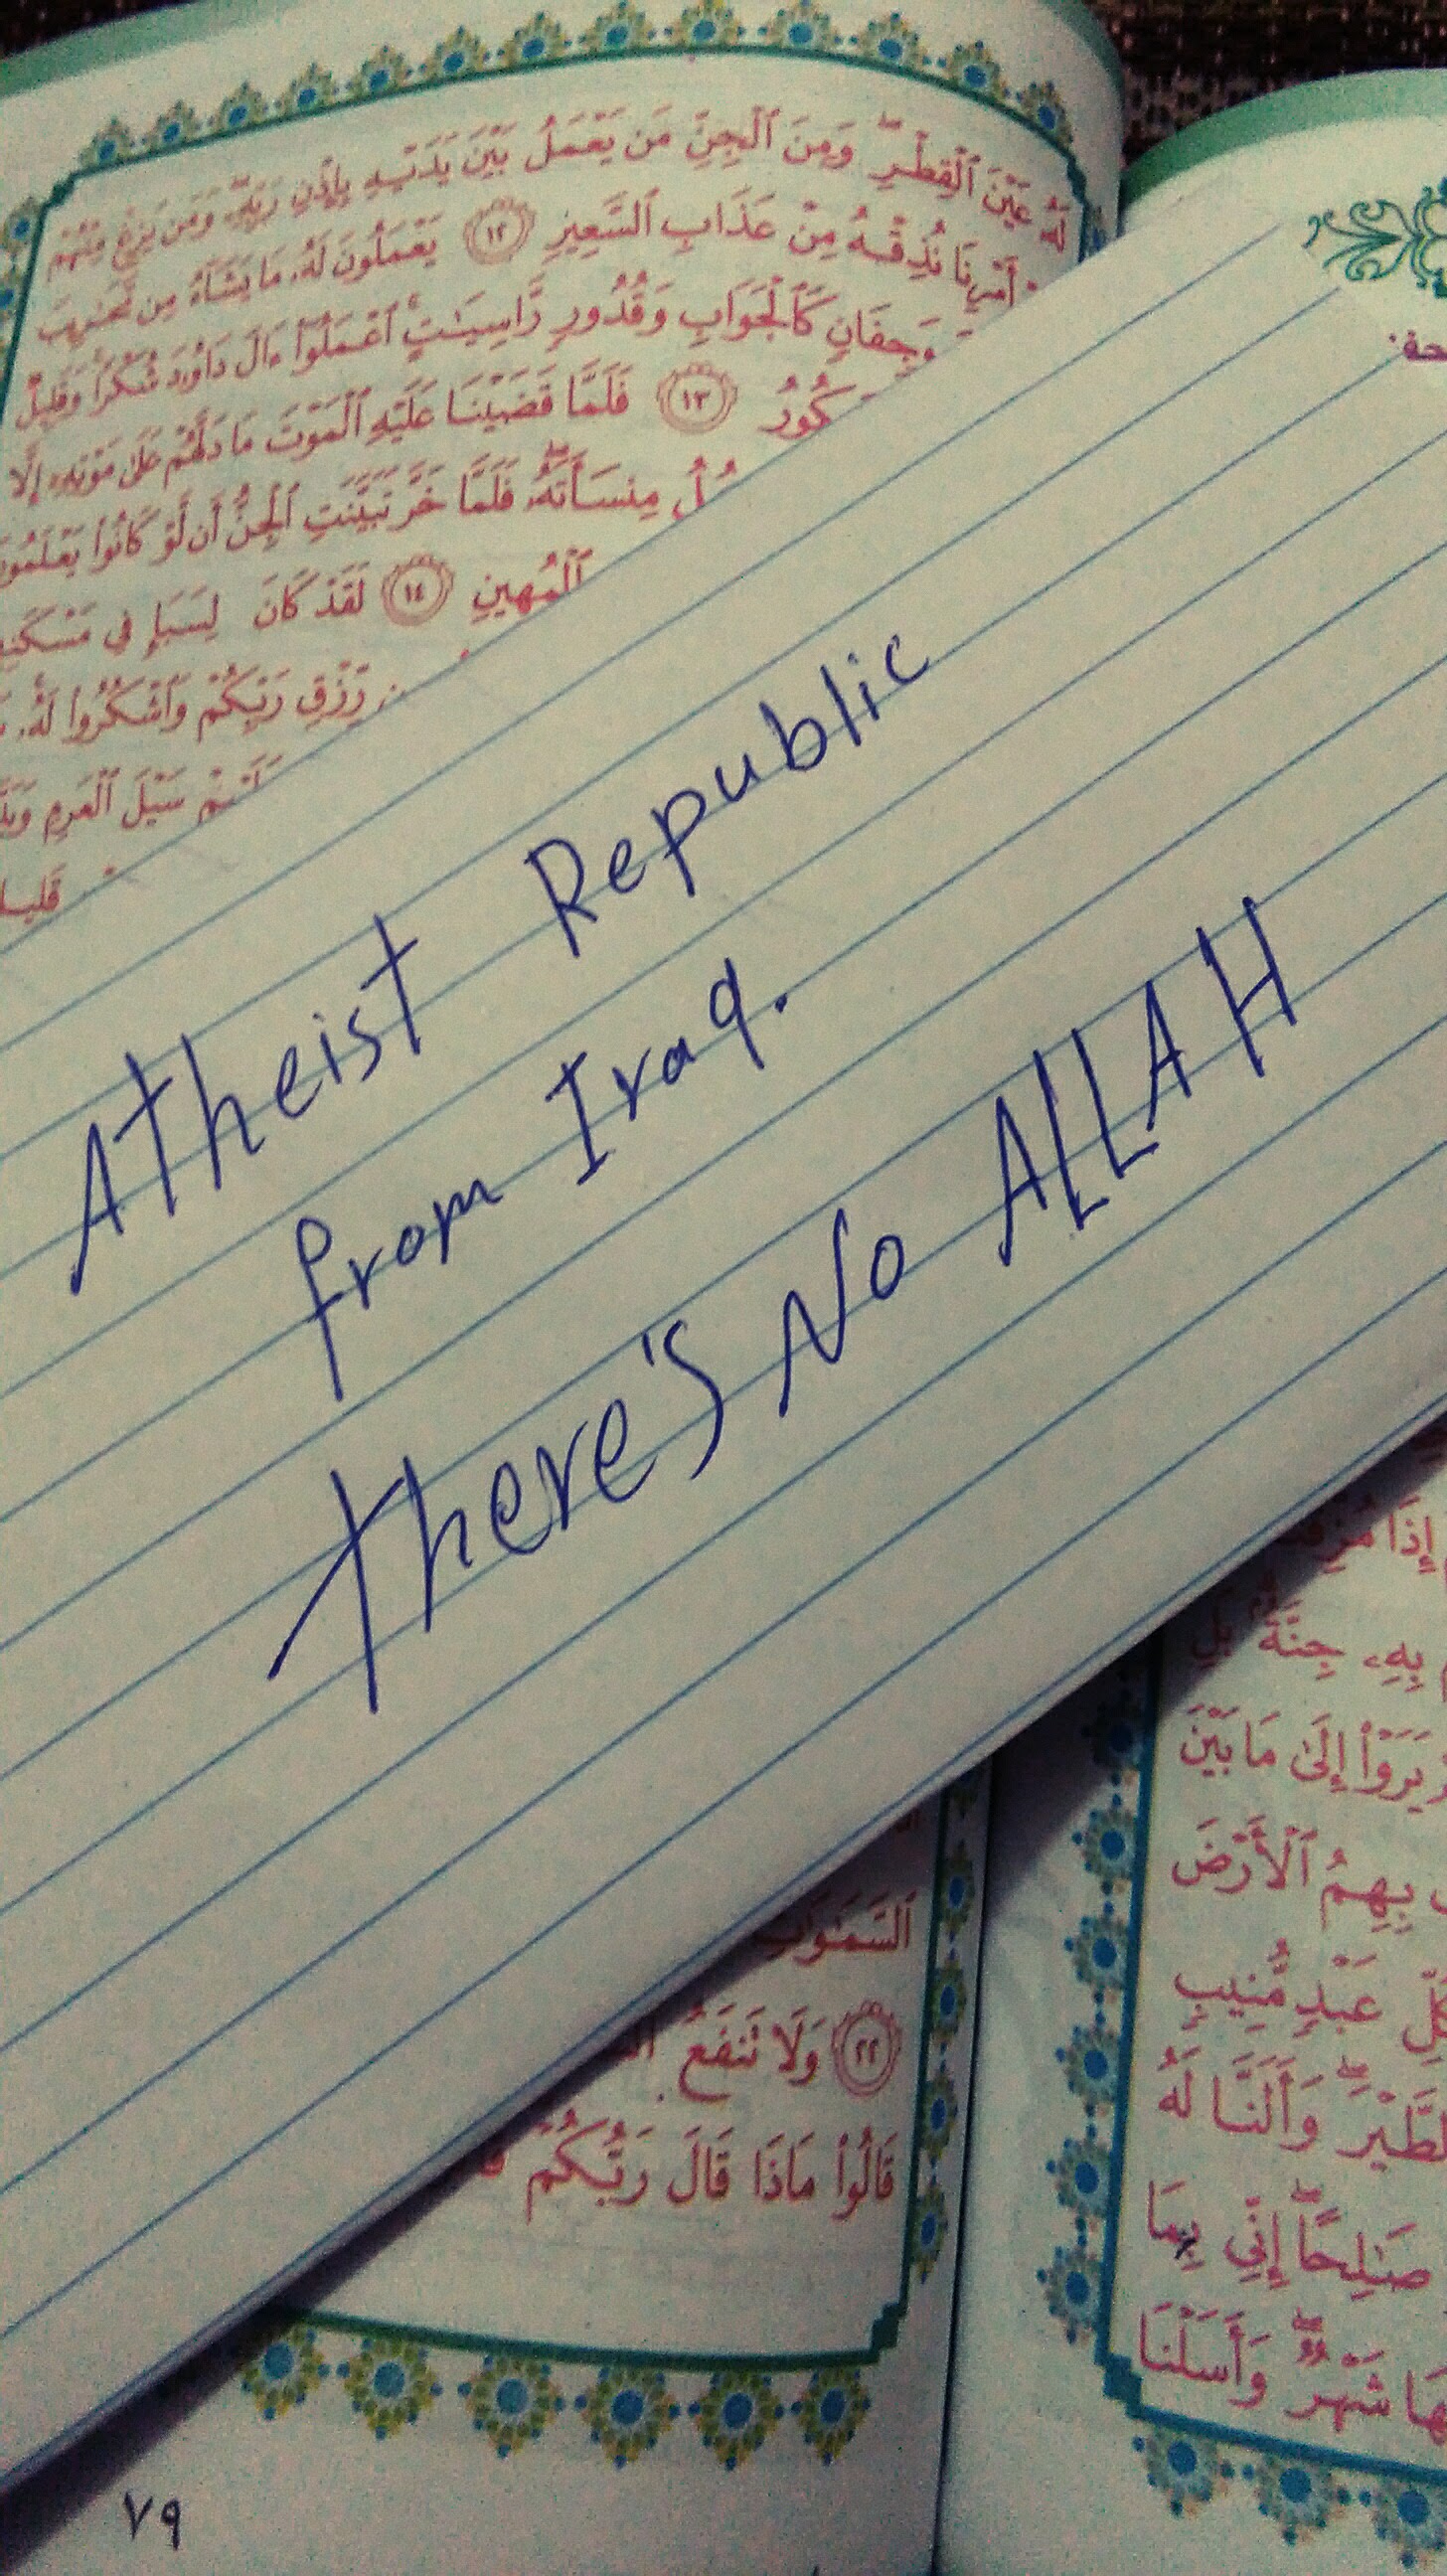 لَهُ عَيْنَ ٱلْقِطْرِ ۖ وَمِنَ ٱلْجِنِّ مَن يَعْمَلُ بَيْنَ يَدَيْهِ بِإِذْنِ رَبِّهِۦ ۖ وَمَن يَزِغْ مِنْهُمْ
أَمْرِنَا نُذِقْهُ مِنْ عَذَابِ ٱلسَّعِيرِ ١٢ يَعْمَلُونَ لَهُۥ مَا يَشَآءُ مِن مَّحَٰرِيبَ
وَجِفَانٍ كَٱلْجَوَابِ وَقُدُورٍ رَّاسِيَٰتٍ ۚ ٱعْمَلُوٓا۟ ءَالَ دَاوُۥدَ شُكْرًا ۚ وَقَلِيلٌ
كُورُ ١٣ فَلَمَّا قَضَيْنَا عَلَيْهِ ٱلْمَوْتَ مَا دَلَّهُمْ عَلَىٰ مَوْتِهِۦٓ إِلَّا
ُلُ مِنسَأَتَهُۥ ۖ فَلَمَّا خَرَّ تَبَيَّنَتِ ٱلْجِنُّ أَن لَّوْ كَانُوا۟ يَعْلَمُونَ
ٱلْمُهِينِ ١٤ لَقَدْ كَانَ لِسَبَإٍ فِى مَسْكَنِهِ
رِّزْقِ رَبِّكُمْ وَٱشْكُرُوا۟ لَهُۥ ۚ
سَيْلَ ٱلْعَرِمِ
قَلِيلٍ
Atheist Republic
from Iraq.
there's No ALLAH
ٱلسَّمَٰوَٰتِ
٢٢ وَلَا تَنفَعُ
قَالُوا۟ مَاذَا قَالَ رَبُّكُمْ
٧٩
حة
إِذَا مُزِّقْ
بِهِۦ جِنَّةٌۢ ۗ بَلِ
يَرَوْا۟ إِلَىٰ مَا بَيْنَ
بِهِمُ ٱلْأَرْضَ
عَبْدٍ مُّنِيبٍ
ٱلطَّيْرَ ۖ وَأَلَنَّا لَهُ
صَٰلِحًا ۖ إِنِّى بِمَا
هَا شَهْرٌ ۖ وَأَسَلْنَا